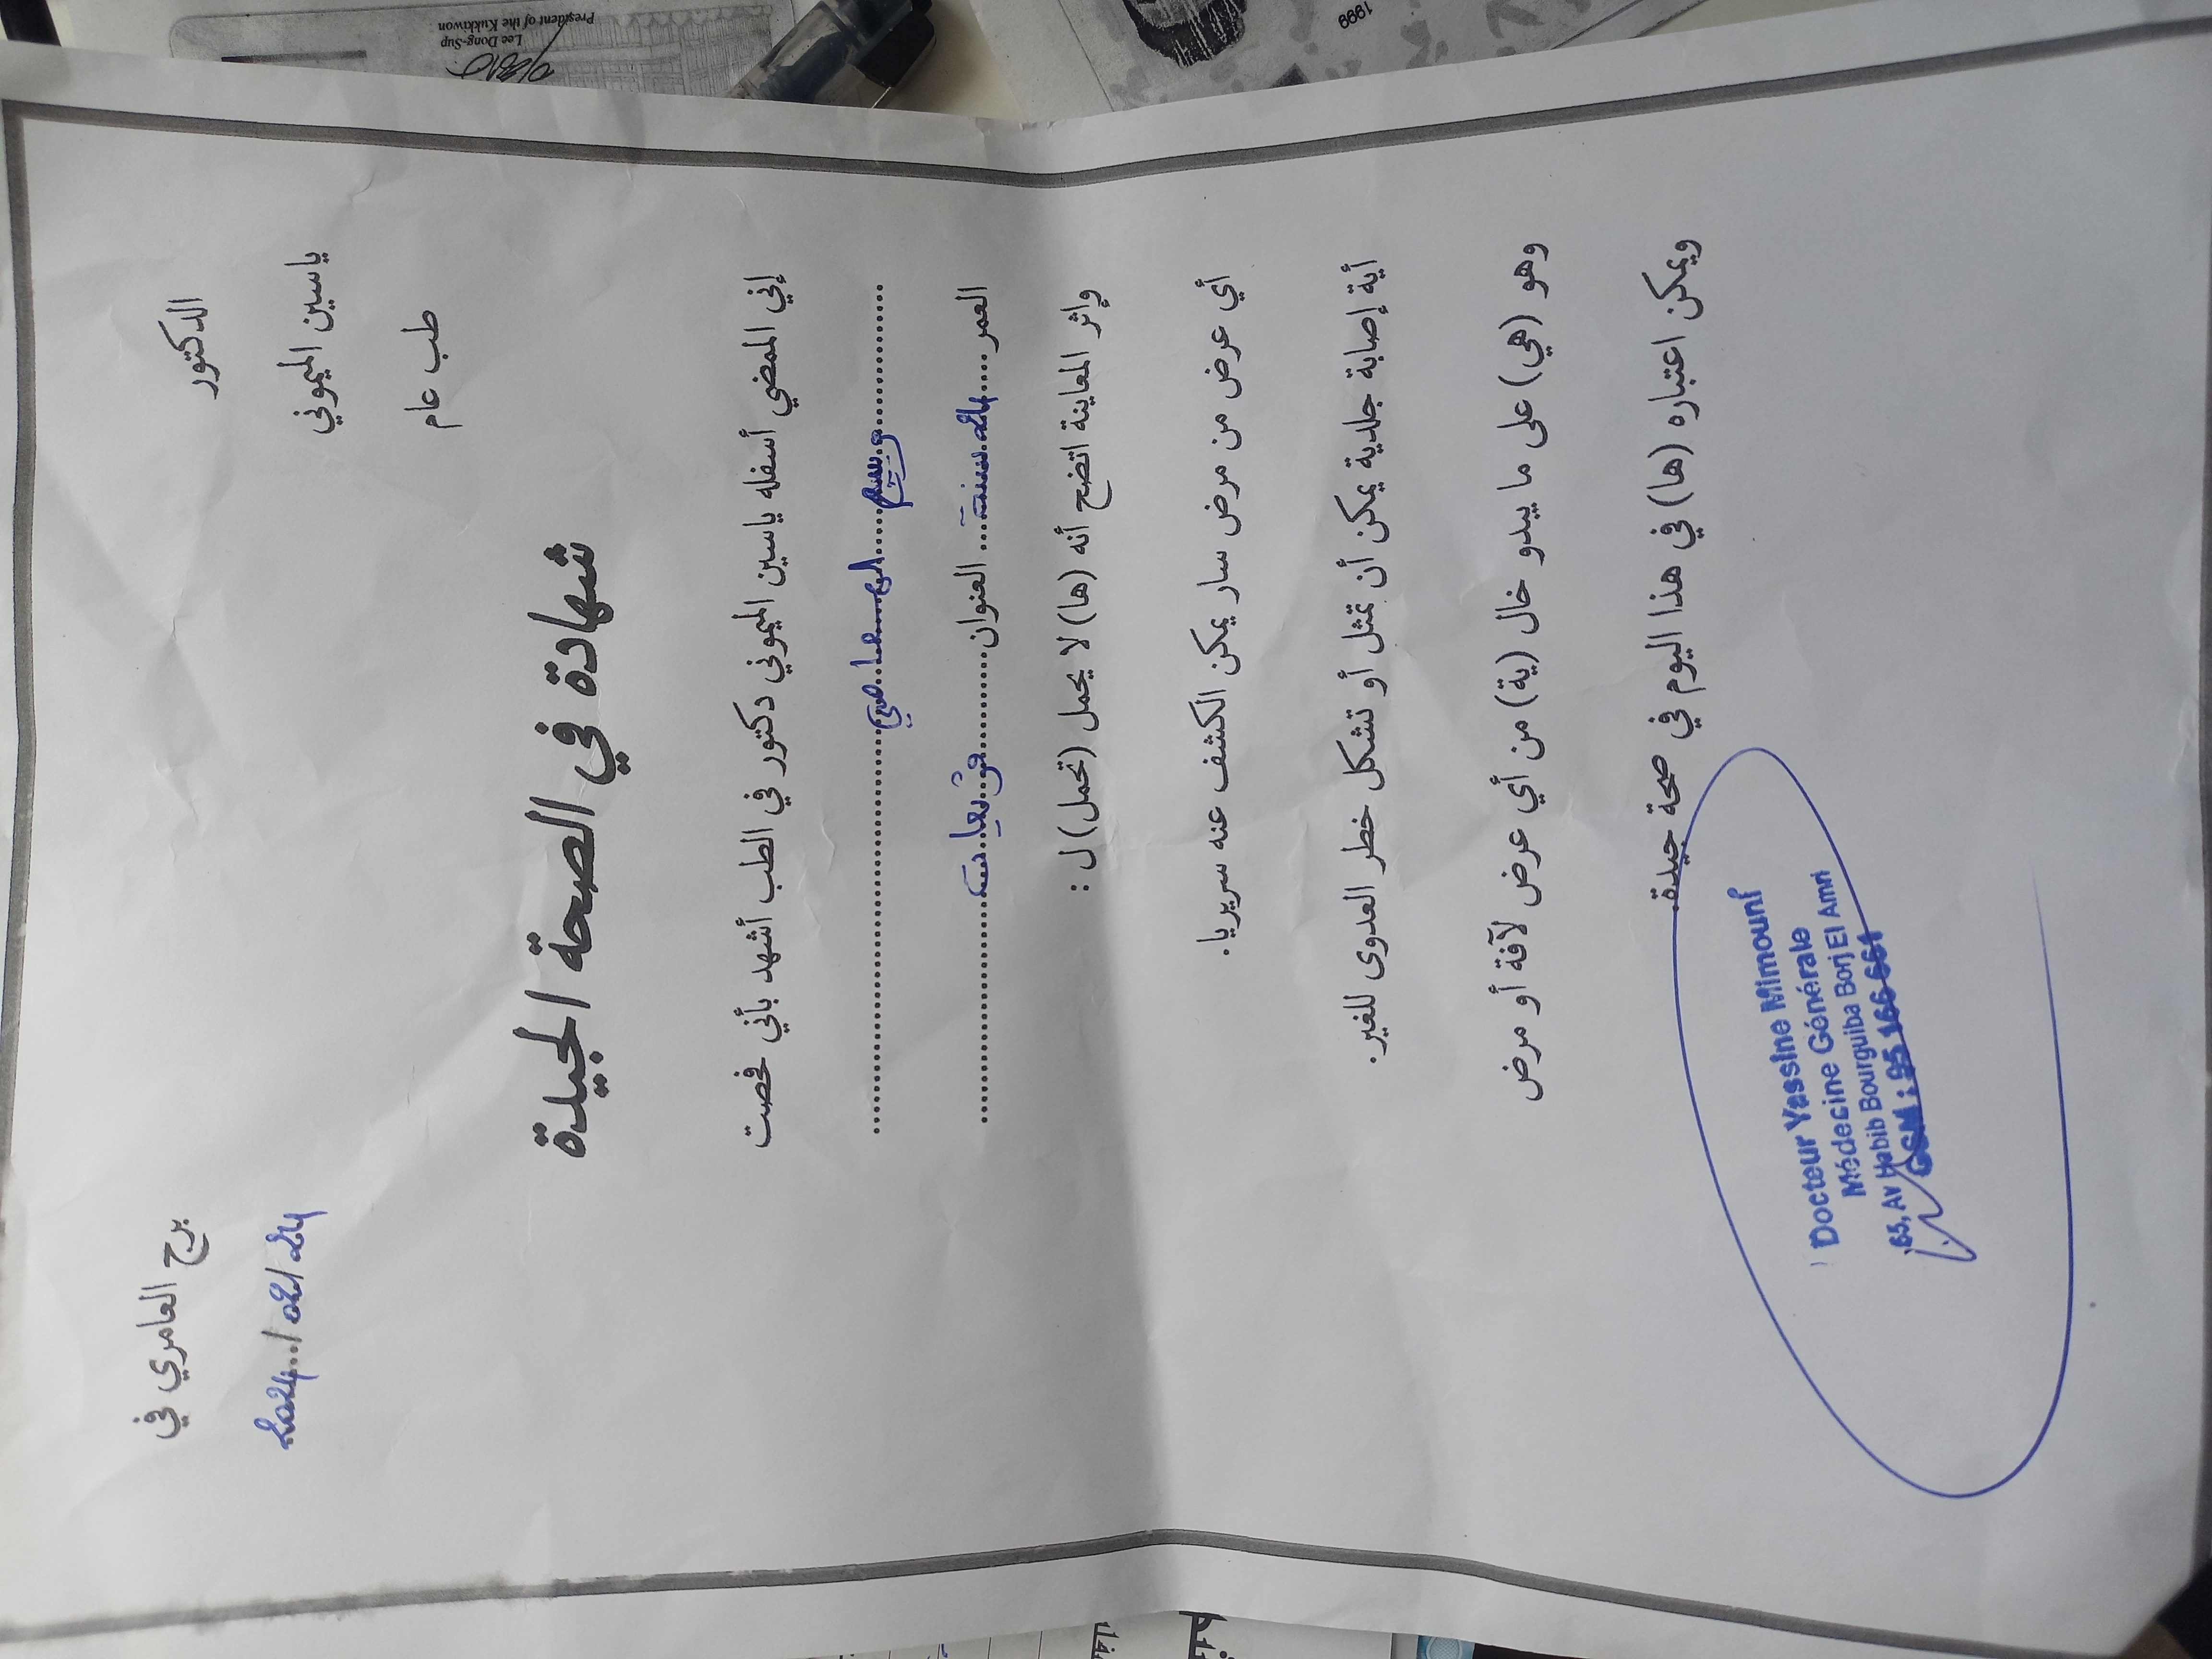 الدكتور
ياسين الميموني
طب عام
برج العامري في
2024../02/24
شهادة في الصحة الجيدة
إني الممضي أسفله ياسين الميموني دكتور في الطب أشهد بأني فحصت
وسيم
العمر.....24 سنة... العنوان
وإثر المعاينة اتضح أنه (ها) لا يحمل (تحمل) ل :
أي عرض من مرض سار يمكن الكشف عنه سريريا.
أية إصابة جلدية يمكن أن تمثل أو تشكل خطر العدوى للغير.
وهو (هي) على ما يبدو خال (ية) من أي عرض لآفة أو مرض
ويمكن اعتباره (ها) في هذا اليوم في صحة جيدة.
Docteur Yassine Mimouni
Médecine Générale
65, Av Habib Bourguiba Borj El Amri
GSM : 95 166 661
Lee Dong-Sup
President of the Kukkiwon
1999